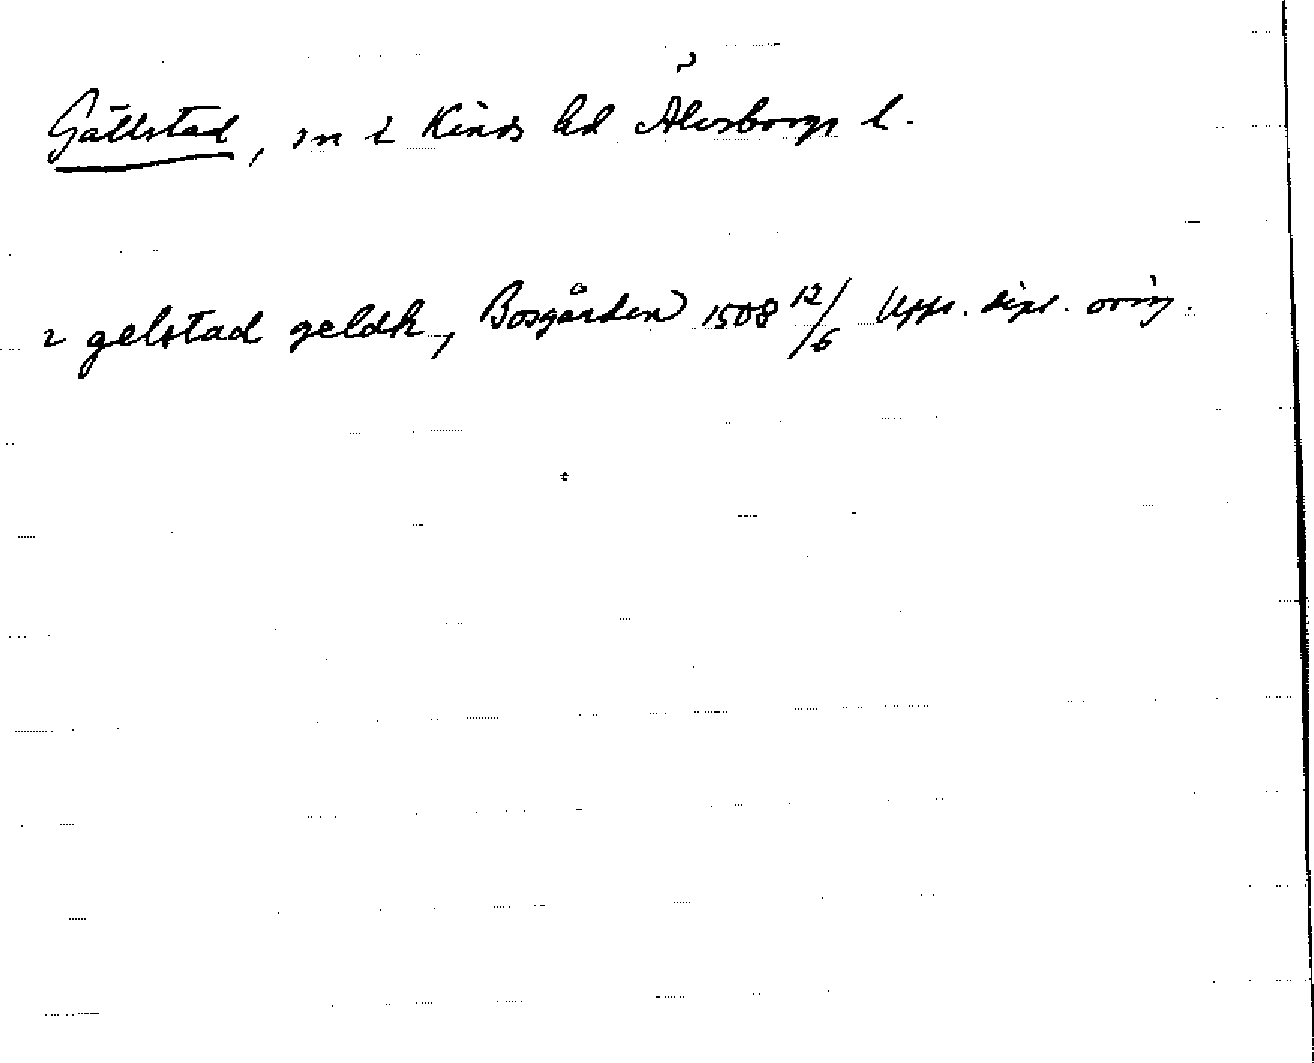 Gällstad, sn i Kinds hd Älvsborgs l.
i gelstad geldh, Bosgården 1508 12/6 Upps. dipl. orig.